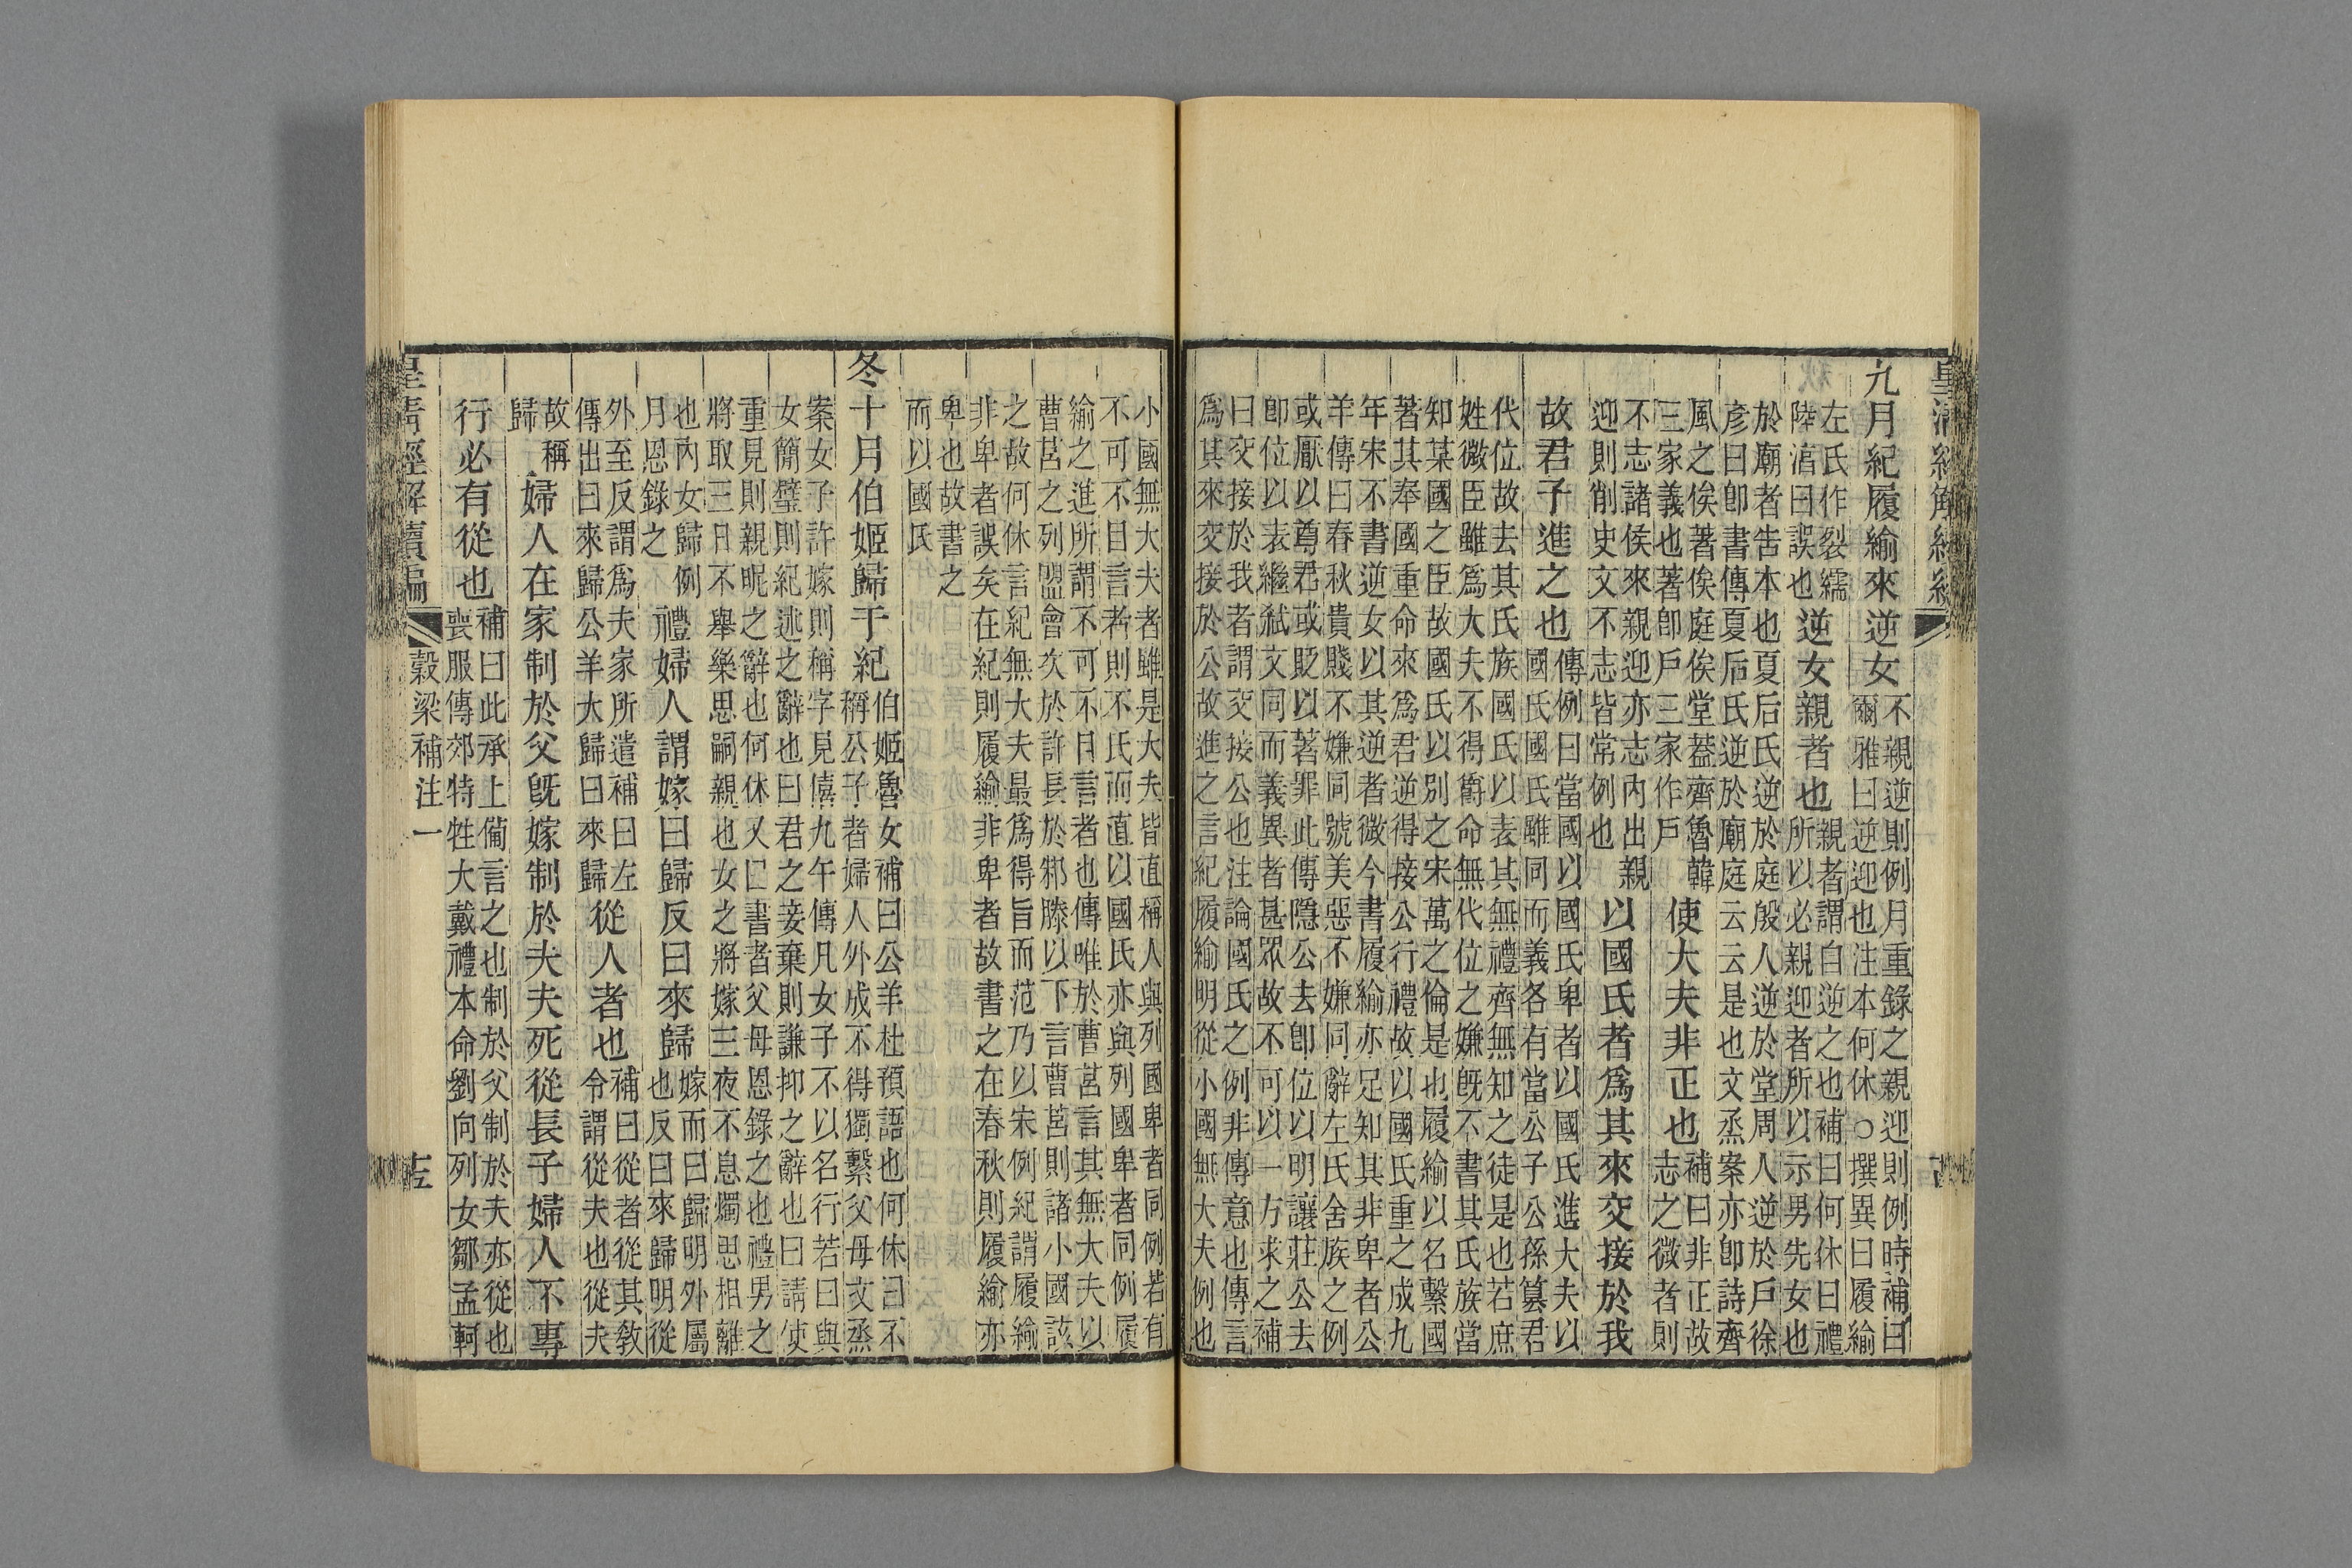 九月紀履緰來逆女
不親逆則例月重錄之親迎則例時補曰
爾雅曰逆迎也注本何休○撰異曰履緰
左氏作裂繻
陸湻曰誤也
逆女親者也
親者謂自逆之也補曰何休曰禮
所以必親迎者所以示男先女也
於廟者告本也夏后氏逆於庭殷人逆於堂周人逆於戶徐
彥曰卽書傳夏后氏逆於廟庭云云是也文烝案亦卽詩齊
風之俟著俟庭俟堂蓋齊魯韓
三家義也著卽戶三家作戶
使大夫非正也
補曰非正故
志之微者則
不志諸侯來親迎亦志內出親
迎則削史文不志皆常例也
以國氏者爲其來交接於我
故君子進之也
傳例曰當國以國氏卑者以國氏進大夫以
國氏國氏雖同而義各有當公子公孫篡君
代位故去其氏族國氏以表其無禮齊無知之徒是也若庶
姓微臣雖爲大夫不得爵命無代位之嫌旣不書其氏族當
知某國之臣故國氏以別之宋萬之倫是也履緰以名繫國
著其奉國重命來爲君逆得接公行禮故以國氏重之成九
年宋不書逆女以其逆者微今書履緰亦足知其非卑者公
羊傳曰春秋貴賤不嫌同號美惡不嫌同辭左氏舍族之例
或厭以尊君或貶以著罪此傳隱公去卽位以明讓莊公去
卽位以表繼弒文同而義異者甚眾故不可以一方求之補
曰交接於我者謂交接公也注論國氏之例非傳意也傳言
爲其來交接於公故進之言紀履緰明從小國無大夫例也
小國無大夫者雖是大夫皆直稱人與列國卑者同例若有
不可不目言者則不氏而直以國氏亦與列國卑者同例履
緰之進所謂不可不目言者也傳唯於曹莒言其無大夫以
曹莒之列盟會次於許長於邾滕以下言曹莒則諸小國該
之故何休言紀無大夫最爲得旨而范乃以宋例紀謂履緰
非卑者誤矣在紀則履緰非卑者故書之在春秋則履緰亦
卑也故書之
而以國氏
冬十月伯姬歸于紀
伯姬魯女補曰公羊杜預語也何休曰不
稱公子者婦人外成不得獨繫父母文烝
案女子許嫁則稱字見僖九年傳凡女子不以名行若曰與
女簡璧則紀述之辭也曰君之妾棄則謙抑之辭也曰請使
重見則親昵之辭也何休又曰書者父母恩錄之也禮男之
將取三日不舉樂思嗣親也女之將嫁三夜不息燭思相離
也內女歸例
月恩錄之
禮婦人謂嫁曰歸反曰來歸
嫁而曰歸明外屬
也反曰來歸明從
外至反謂爲夫家所遣補曰左
傳出曰來歸公羊大歸曰來歸
從人者也
補曰從者從其敎
令謂從夫也從夫
故稱
歸
婦人在家制於父旣嫁制於夫夫死從長子婦人不專
行必有從也
補曰此承上備言之也制於父制於夫亦從也
喪服傳郊特牲大戴禮本命劉向列女鄒孟軻
皇清經解續編
穀梁補注一